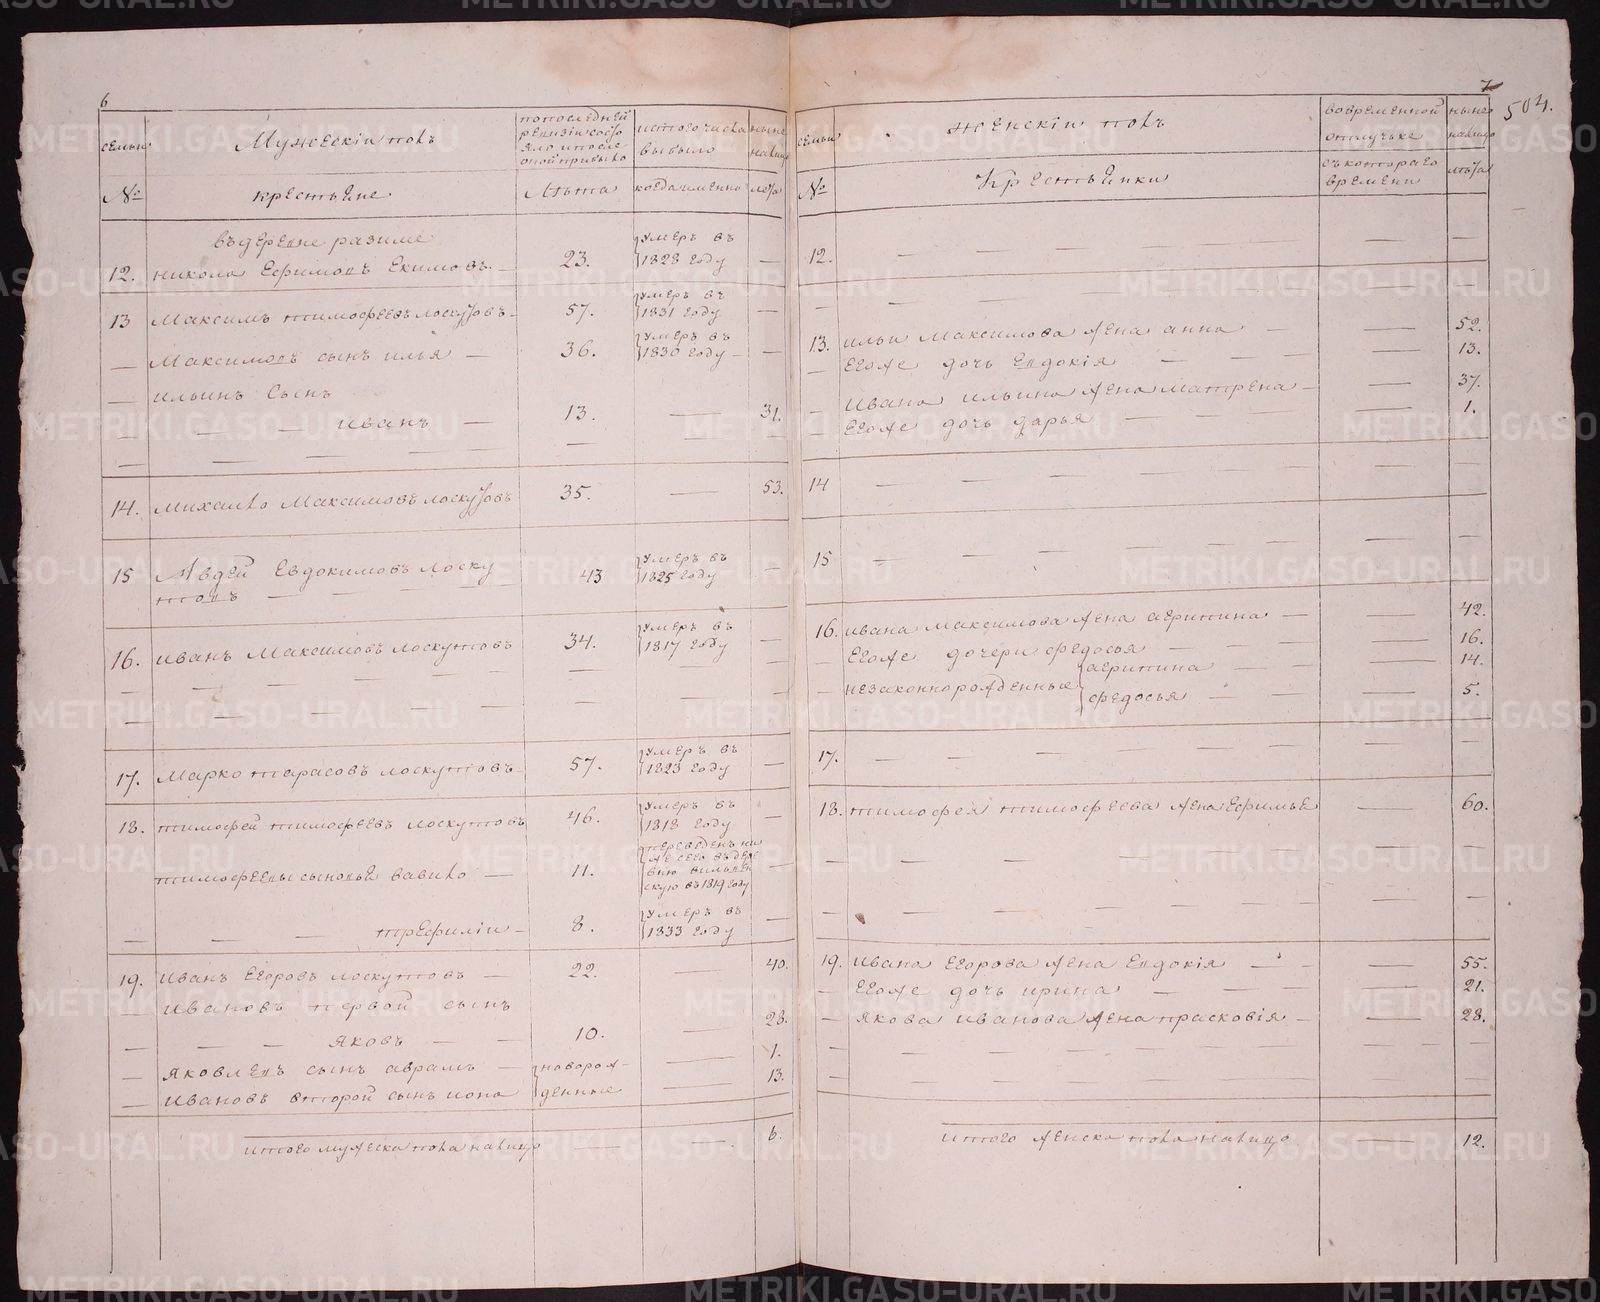 6
семьи
Мужескiи полъ
попоследней
ревизiи состо
яло ипосле
оной прибыло
истого числа
выбыло
ныне
налицо
№
крестьяне
Лѣта
когда именно
лета
въдеревне разиме
12. никола Ефимовъ Екимовъ 23. умеръ въ
1828 году
13 Максимъ тимофеевъ лоскутовъ 57. умеръ въ
1831 году
Максимовъ сынъ илья 36. умеръ въ
1830 году
ильинъ Сынъ
иванъ 13. 31.
14. михаило Максимовъ лоскутовъ 35. 53.
15 Авдей Евдокимовъ лоску 43 умеръ въ
товъ 1825 году
16. иванъ Максимовъ лоскутовъ 34. умеръ въ
1817 году
17. Марко тарасовъ лоскутовъ 57. умеръ въ
1823 году
18. тимофей тимофеевъ лоскутовъ 46. умеръ въ
1818 году
переведенъ на
тимофеевы сыновьей вавило 11.
скую въ 1819 году
трефилiи 8. умеръ въ
1833 году
19. Иванъ Егоровъ лоскутовъ 22. 40.
Ивановъ первой сынъ
яковъ 10. 28.
яковлевъ сынъ аврамъ новорож- 1.
Ивановъ второй сынъ иона денные 13.
итого мужеска пола налицо 6.
7
504.
семьи
женскiи полъ
вовременной
отлучьке
ныне
налицо
№
Крестьянки
съкотораго
времени
лѣта
12.
13. ильи Максимова жена анна 52.
Егоже дочь Евдокiя 13.
Ивана ильина жена Матрена 37.
Егоже дочь дарья 1.
14
15
16. ивана максимова жена агрипина 42.
Егоже дочери федосья 16.
незаконнорожденные агрипина 14.
федосья 5.
17.
18. тимофея тимофеева жена Ефимья 60.
19. Ивана Егорова жена Евдокiя 55.
Егоже дочь ирина 21.
якова иванова жена прасковiя 28.
итого женска пола налицо 12.
METRIKI.GASO-URAL.RU